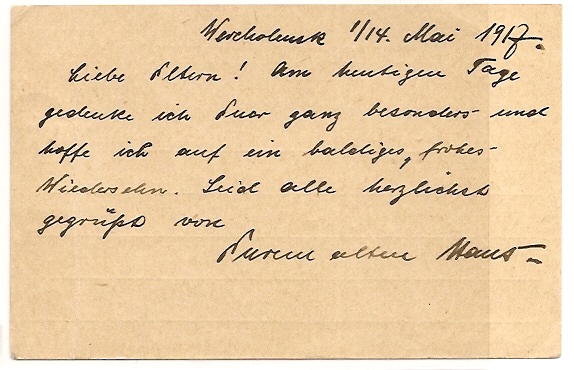 Wercholensk 1/14. Mai 1917.
Liebe Eltern! Am heutigen Tage
gedenke ich Euer ganz besonders und
hoffe ich auf ein baldiges, frohes
Wiedersehn. Seid alle herzlichst
gegrüßt von
Eurem alten Hans